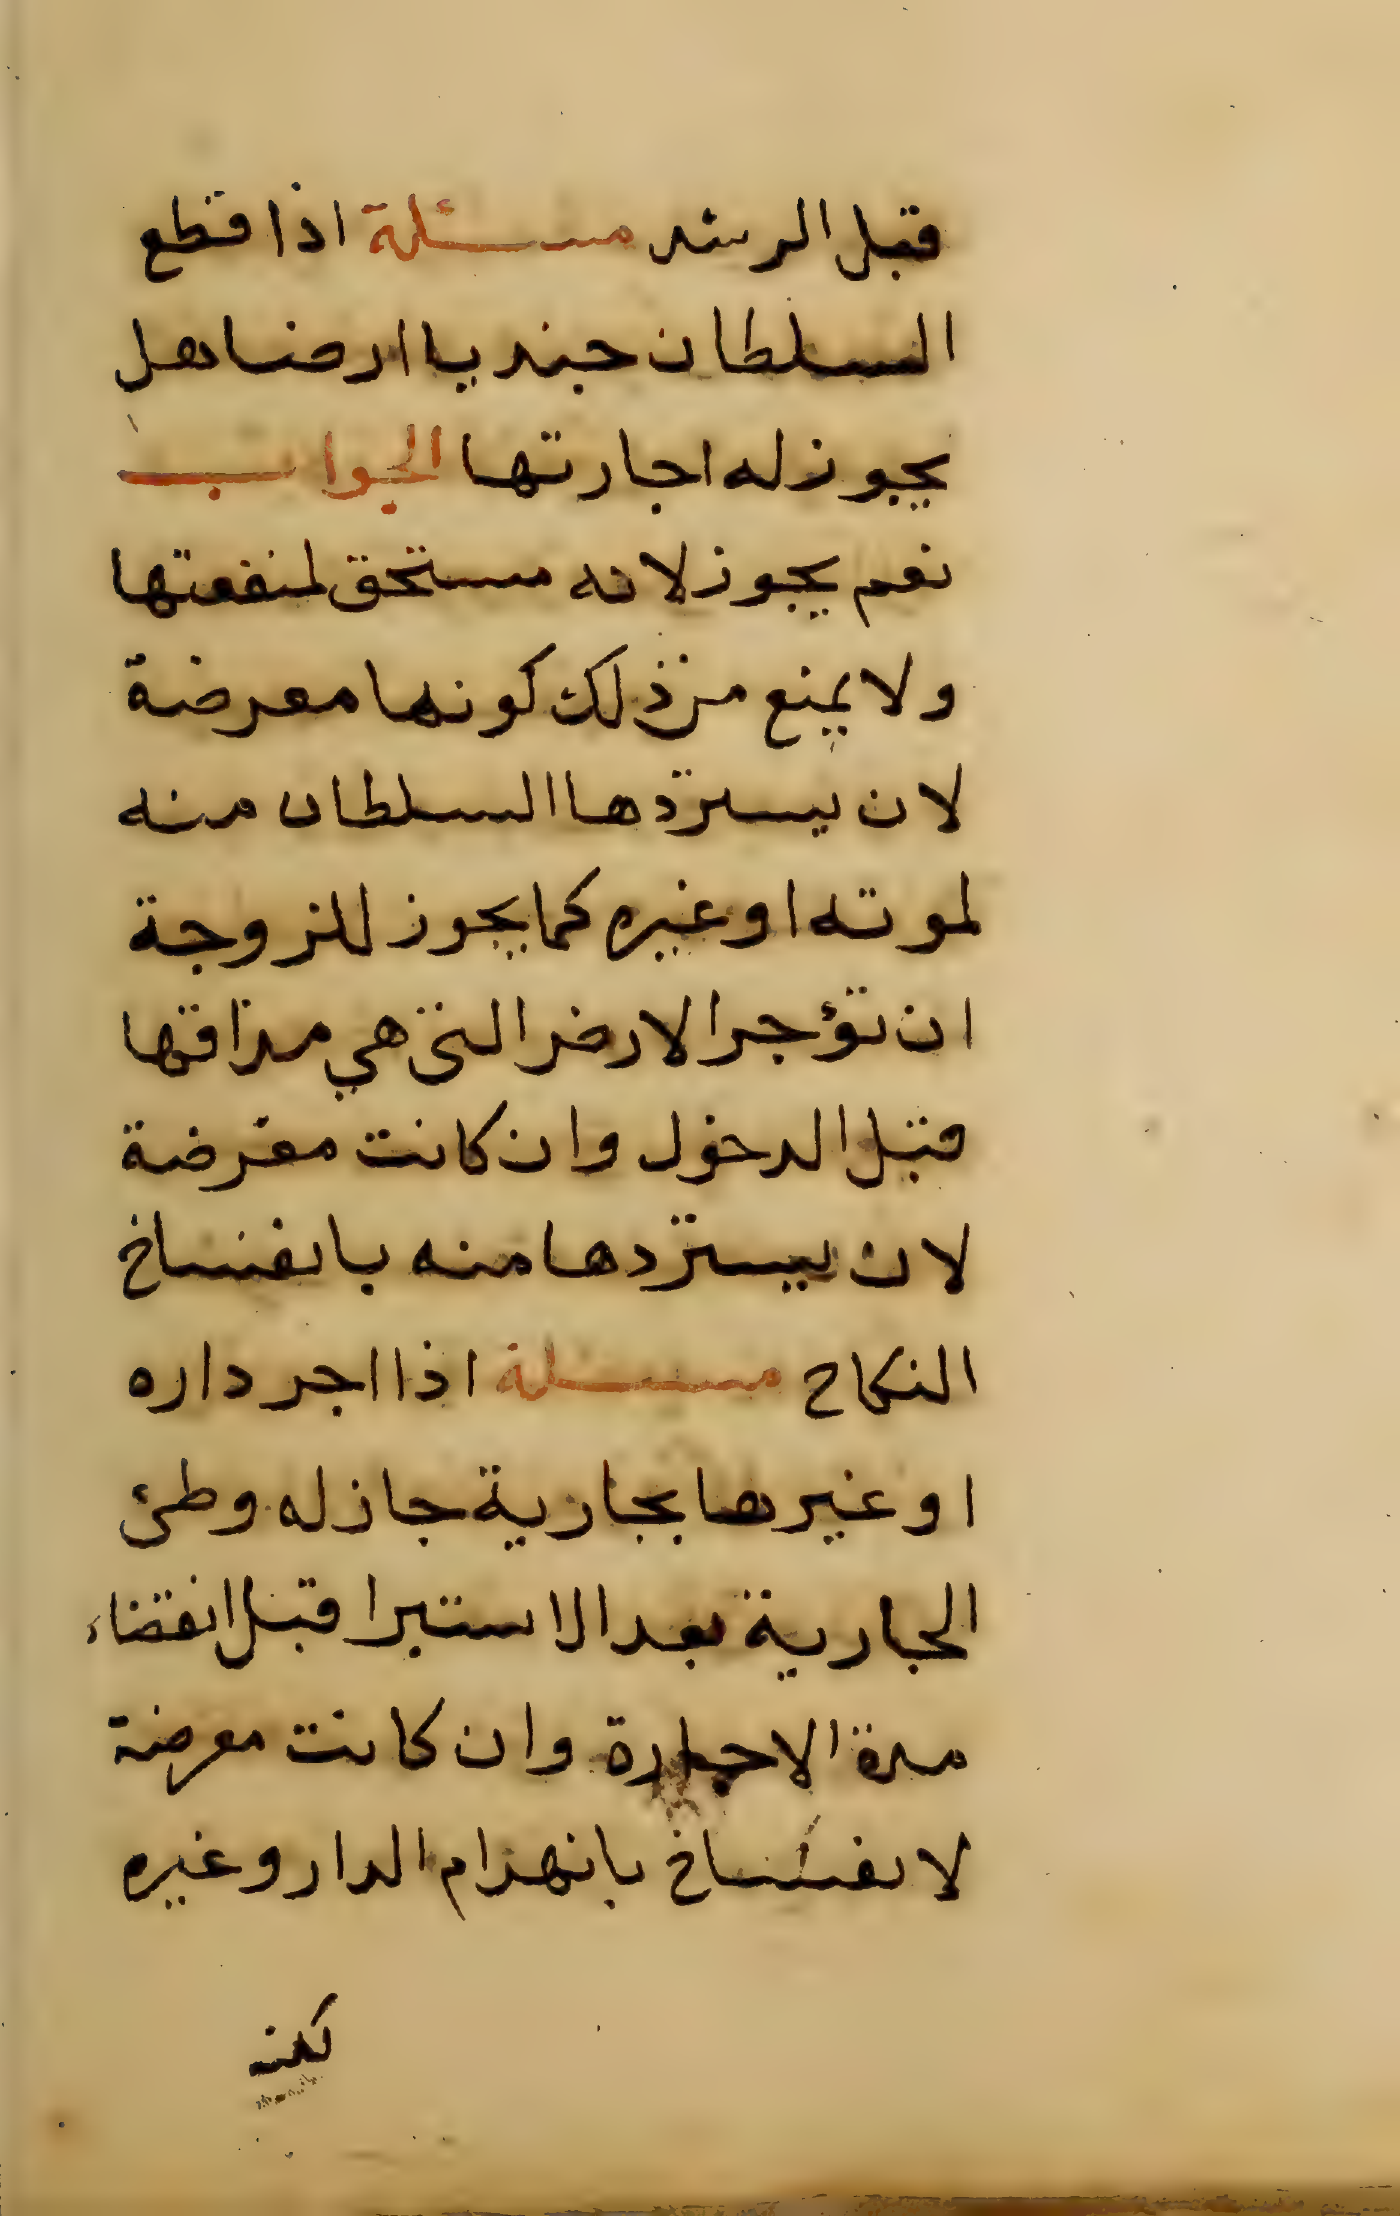 قبل الرشد مسئلة اذا قطع
السلطان جنديا ارضا هل
يجوز له اجارتها الجواب
نعم يجوز لانه مستحق لمنفعتها
ولا يمنع من ذلك كونها معرضة
لان يستردها السلطان منه
لموته او غيره كما يجوز للزوجة
ان تؤجر الارض التي هي صداقها
قبل الدخول وان كانت معرضة
لان يستردها منه بانفساخ
النكاح مسئلة اذا اجر داره
او غيرها بجارية جاز له وطئ
الجارية بعد الاستبرا قبل انقضاء
مدة الاجارة وان كانت معرضة
لانفساخ بانهدام الدار وغيره
لكنه